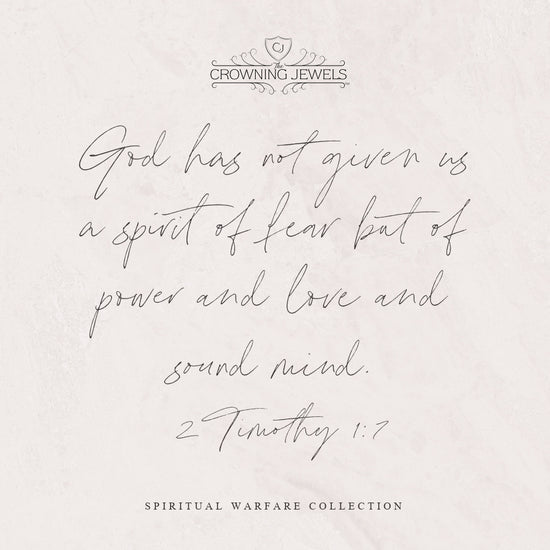 CJ
The
CROWNING JEWELS
God has not given us
a spirit of fear but of
power and love and
sound mind.
2 Timothy 1:7
SPIRITUAL WARFARE COLLECTION